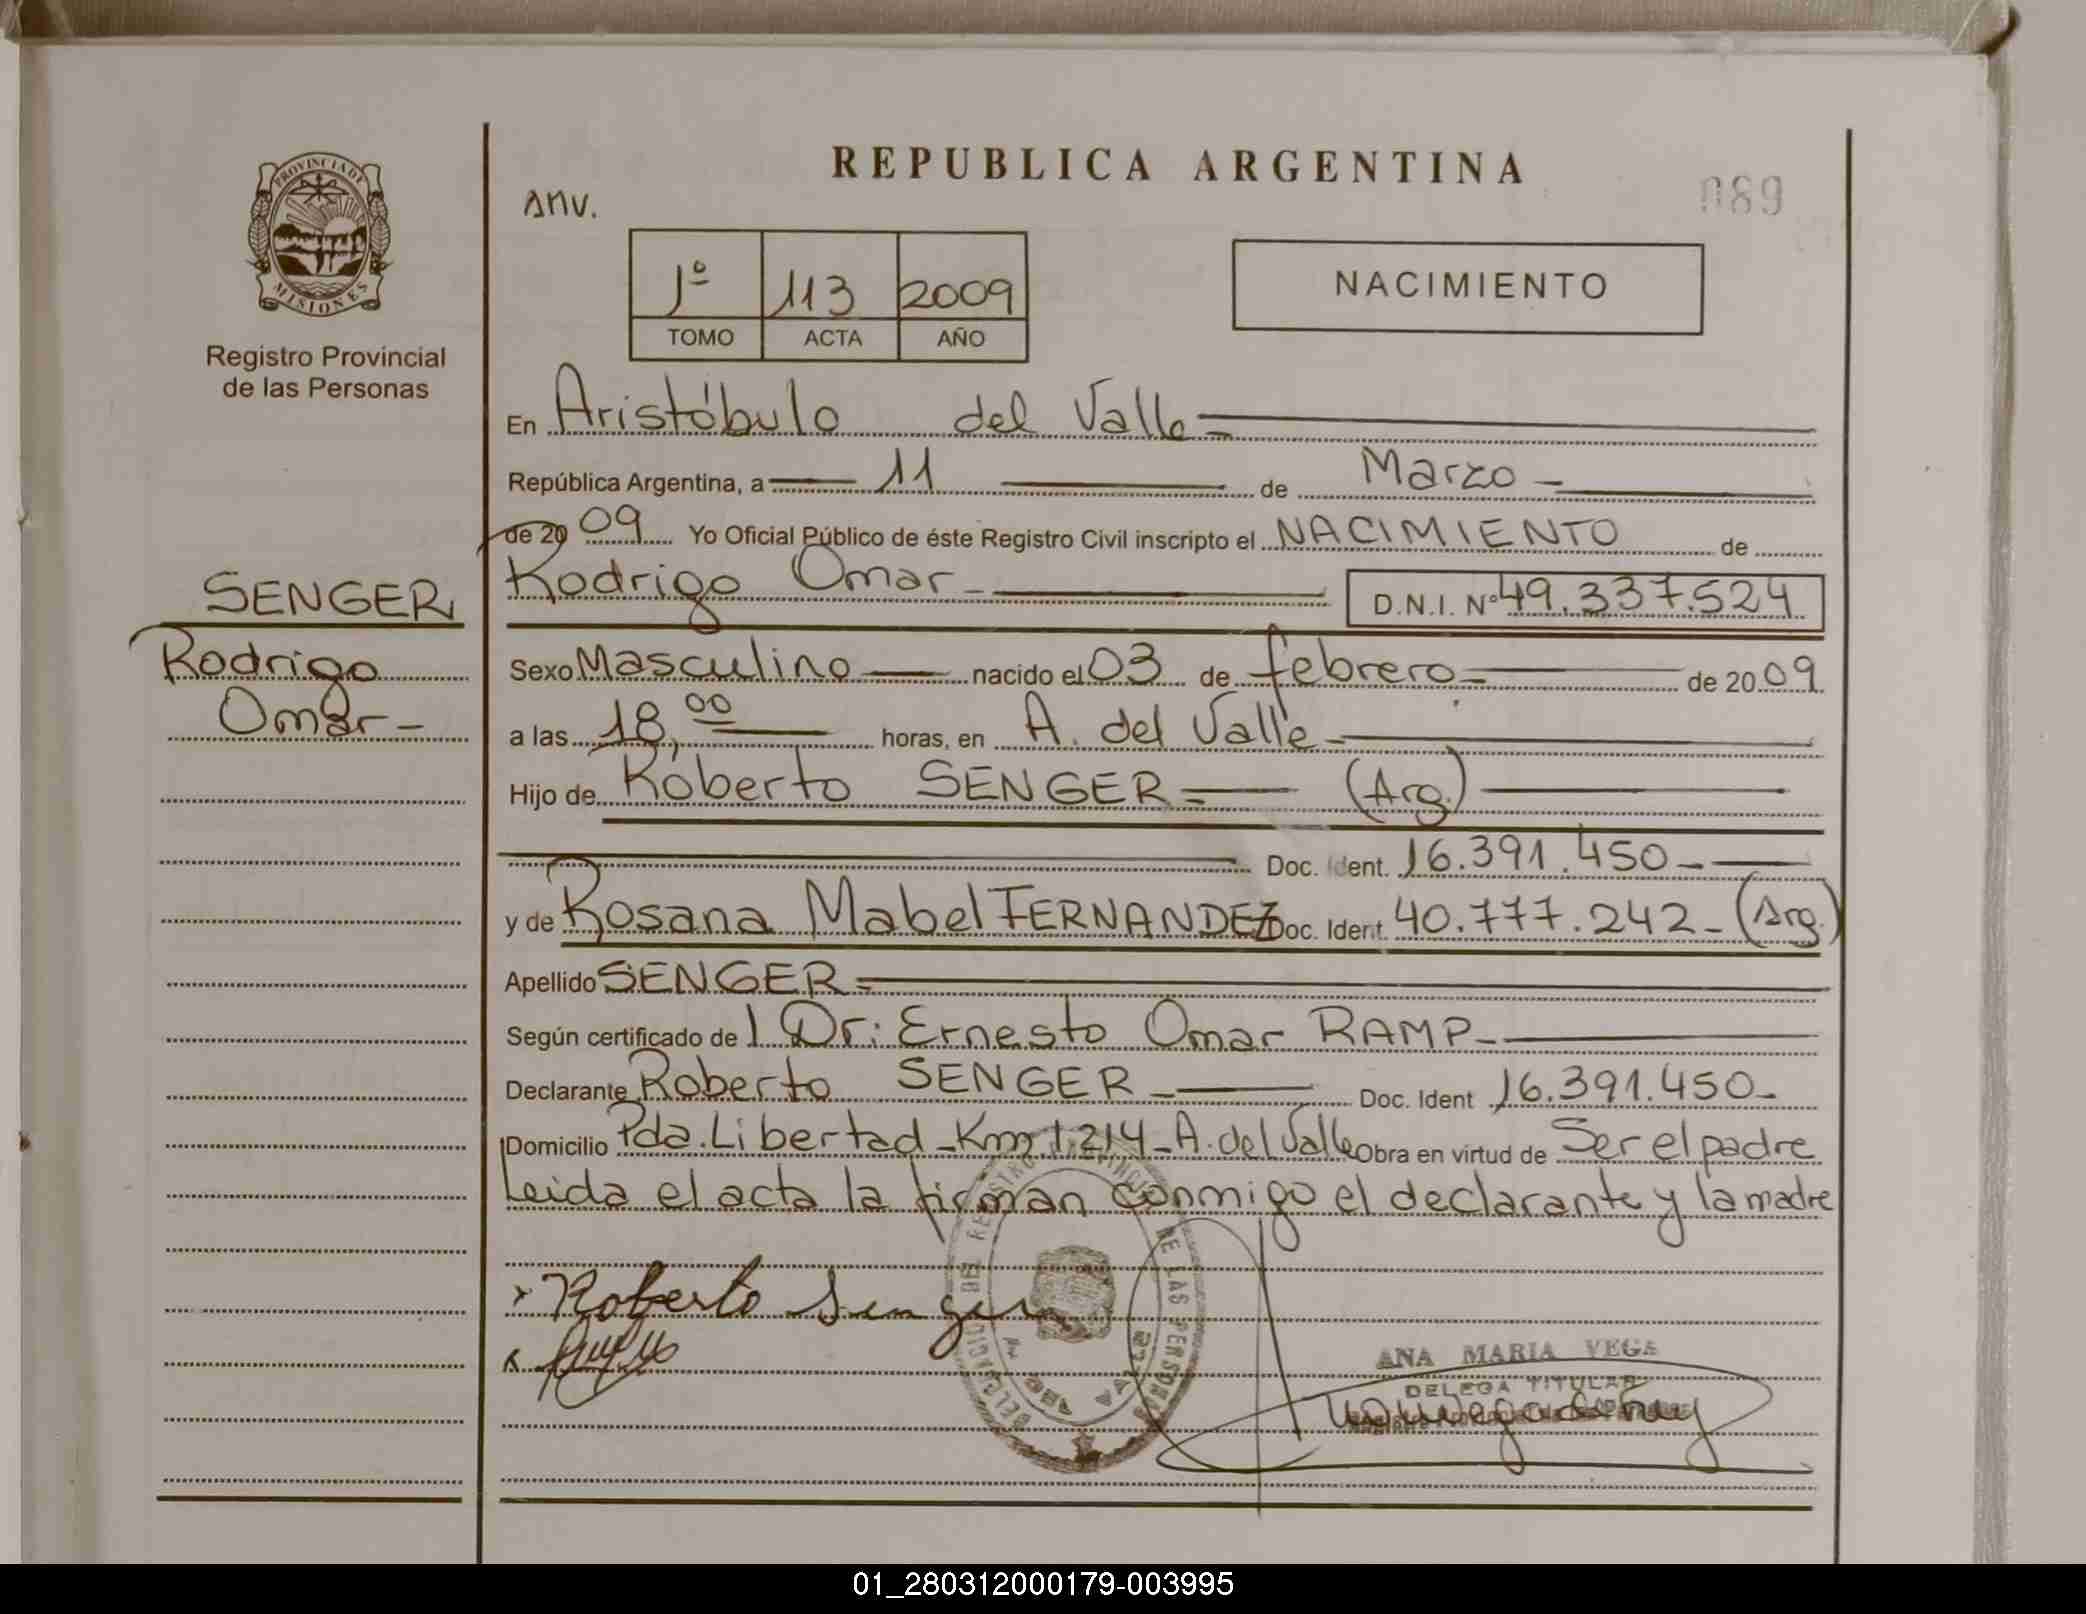 REPUBLICA ARGENTINA
089
anv.
PROVINCIA DE
MISIONES
Registro Provincial
de las Personas
1º 113 2009
TOMO ACTA AÑO
NACIMIENTO
En Aristóbulo del Valle
República Argentina, a 11 de Marzo
de 2009 Yo Oficial Público de éste Registro Civil inscripto el NACIMIENTO de
Rodrigo Omar D.N.I. Nº 49.337.524
SENGER,
Rodrigo
Omar
Sexo Masculino nacido el 03 de febrero de 2009
a las 18,00 horas, en A. del Valle
Hijo de Roberto SENGER (Arg.)
Doc. Ident. 16.391.450
y de Rosana Mabel FERNANDEZ Doc. Ident. 40.777.242 (Arg.)
Apellido SENGER
Según certificado de 1 Dr: Ernesto Omar RAMP
Declarante Roberto SENGER Doc. Ident 16.391.450
Domicilio Pda. Libertad - Km 1.214 - A. del Valle Obra en virtud de Ser el padre
Leida el acta la firman conmigo el declarante y la madre
Roberto Senger
ANA MARIA VEGA
DELEGA TITULAR
DE LAS PERSONAS
01_280312000179-003995